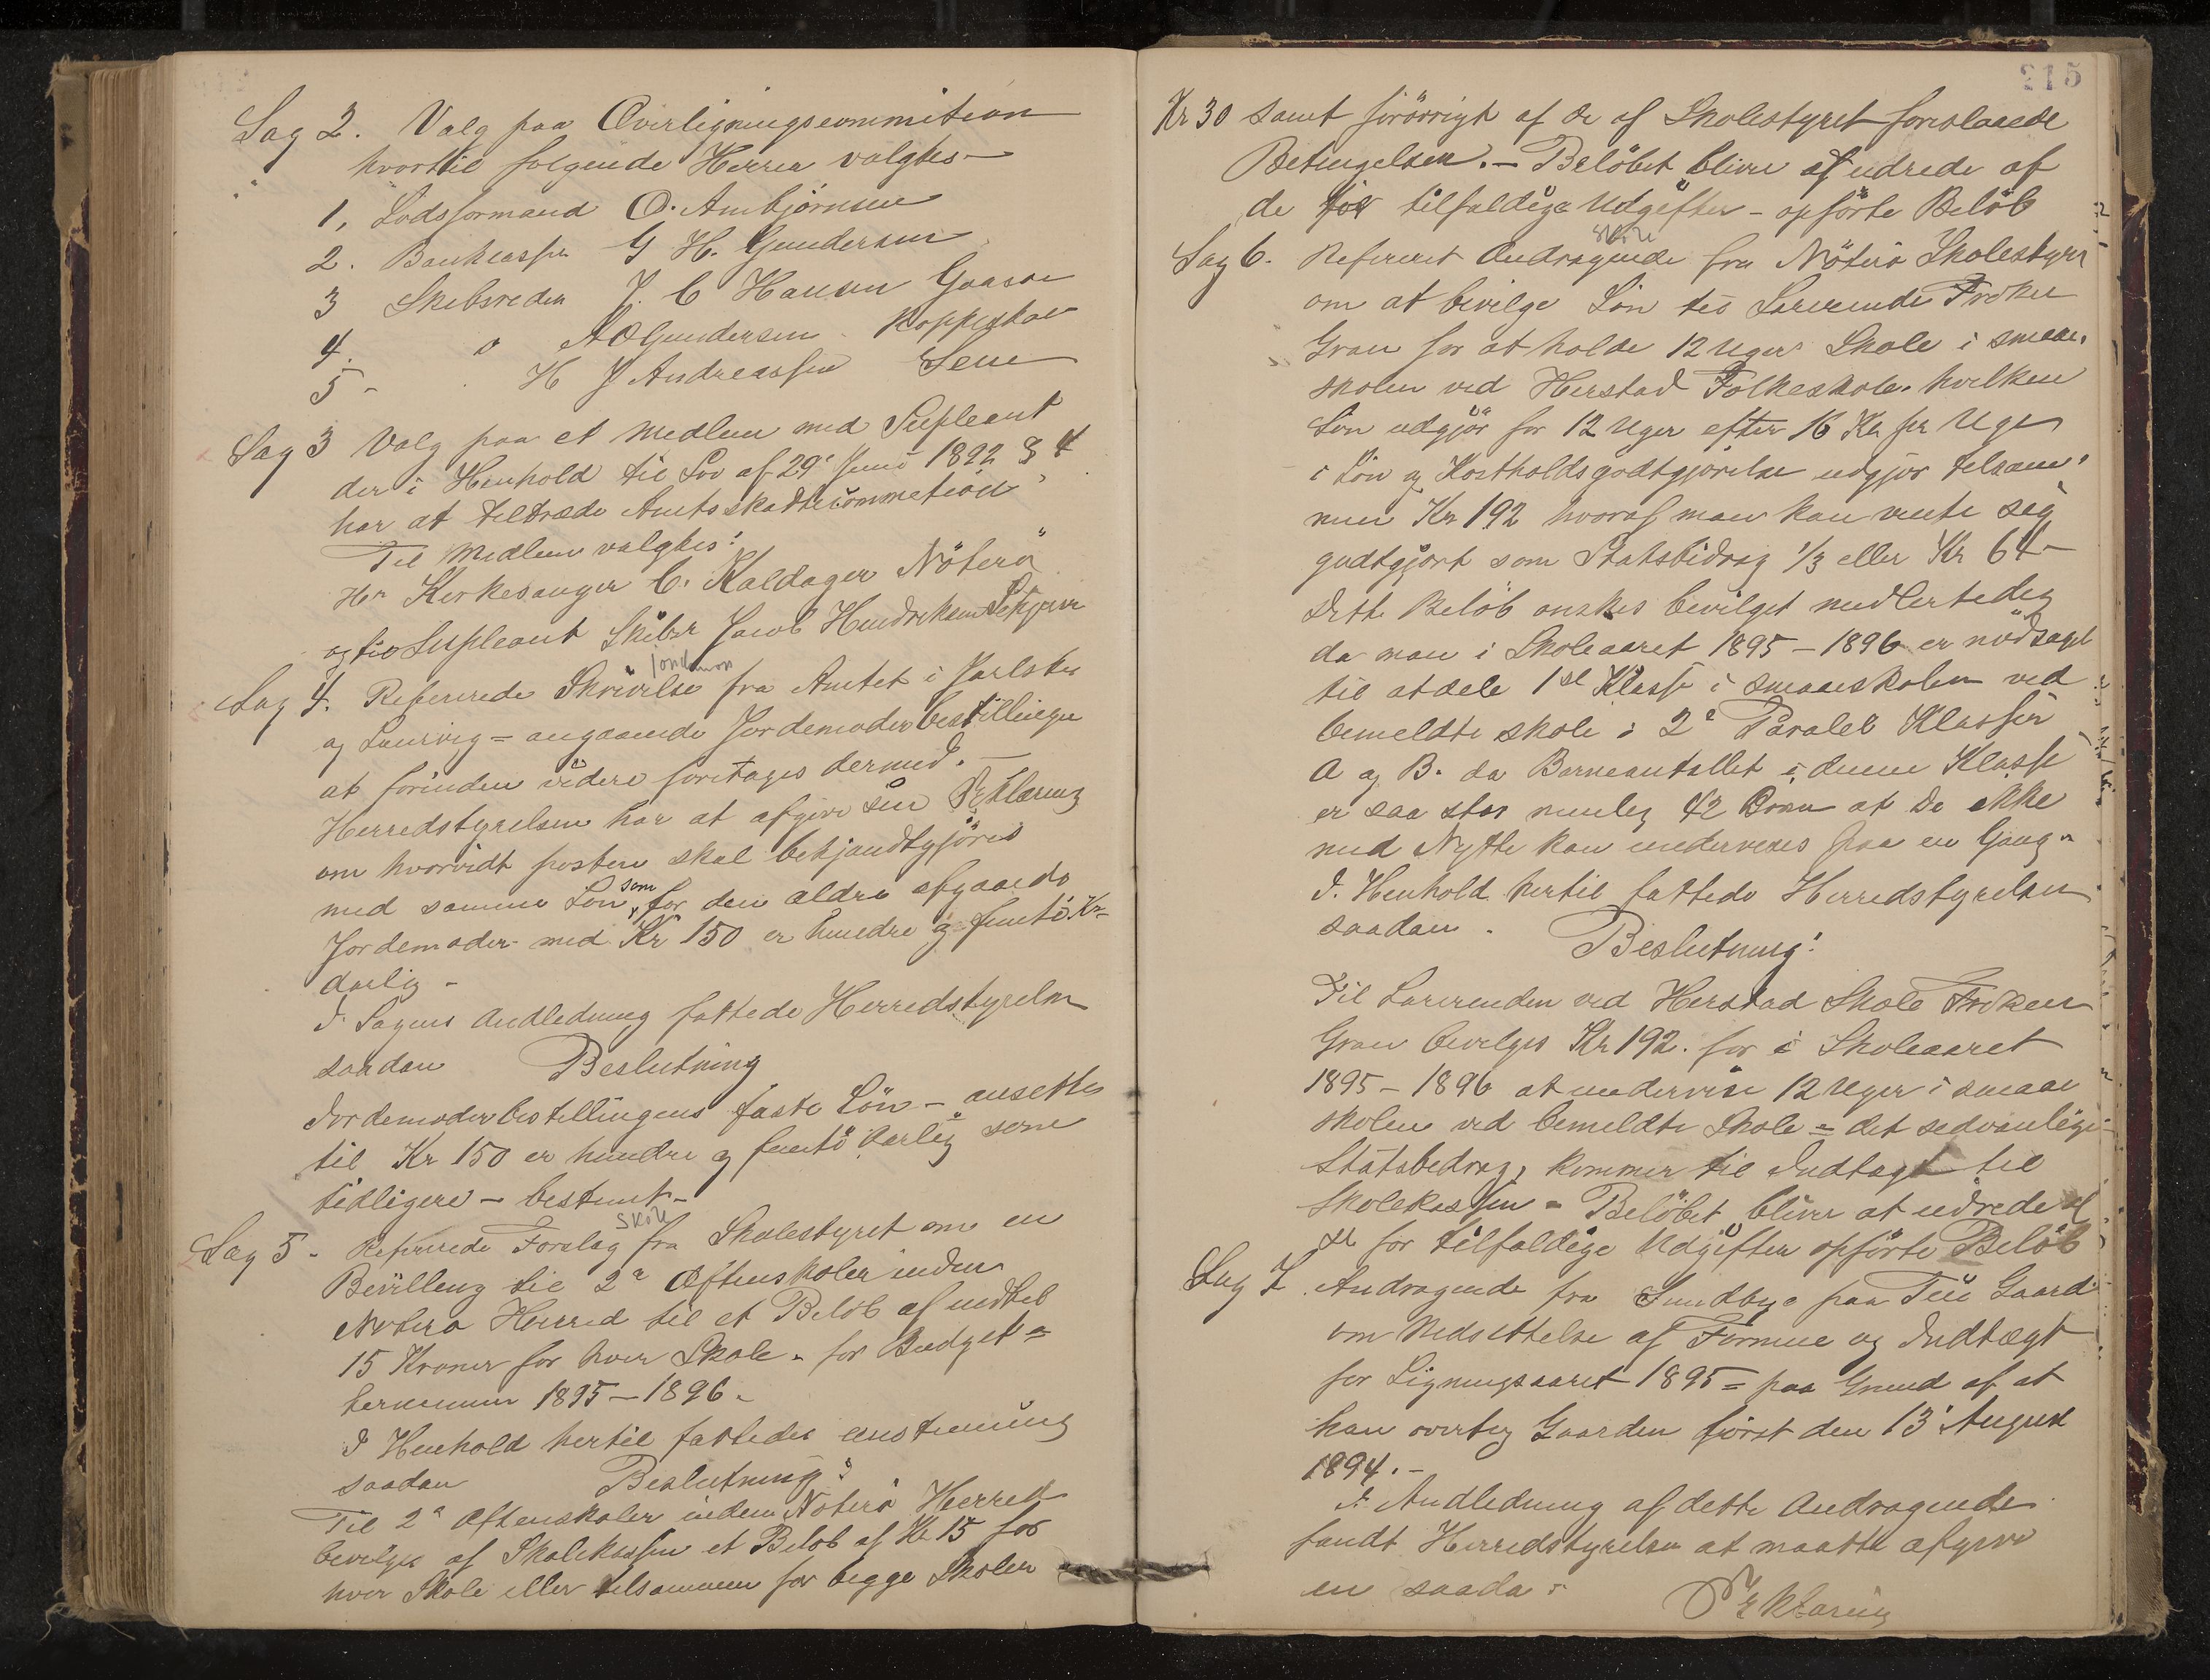 Sag 2. Valg paa Overligningscommition
hvortil følgende Herrer valgtes –
1, Lodsformand O. Ambjörnsen
2. Bankkasser G H. Gundersen
3 Skibsreder J. C Hansen Gaasøe
4. " A O Gundersen
5 - H J Andreassen Sem
Sag 3 Valg paa et Medlem med Supleant
der i Henhold til Lov af 29' Juni 1892 § 4
har at tiltræde Amtsskattecommetion
Til Medlem valgtes:
Hr Kirkesanger C. Kaldager Nöterö
og til Supleant Skibsr Jacob Hendriksen
jordmor
Sag 4. Refererede Skrivelse fra Amtet i Jarlsber
og Laurvig = angaaende Jordemoderbestillingen
at forinden videre foretages dermed. –
Herredstyrelsen har at afgive sin Erklæring
om hvorvidt posten skal bekjendtgjöres
med samme Løn som for den ældre afgaaede
Jordemoder med Kr 150 er hundre og femti Kr
aarlig -
I Sagens Andledning fattede Herredstyrelsen
saadan Beslutning
Jordemoderbestillingens faste Lön – ansettes
til Kr 150 er hundre og femti Aarlig som
tidligere – bestemt –
Skole
Sag 5 - Refererede Forslag fra Skolestyret om en
Bevilling til 2de Aftenskoler inden
Nøterø Herred til et Beløb af indtil
15 Kroner for hver Skole - for Budget =
terminen 1895 – 1896 -
I Henhold hertil fattedes enstemmig
saadan Beslutning:
Til 2de Aftenskoler inden Nøterö Herred
bevilges af Skolekassen et Beløb af Kr 15 for
hver Skole eller tilsammen for begge Skoler
215
Kr 30 samt forövrigt af de af Skolestyret foreslaaede
Betingelser. – Belöbet bliver at udrede af
de for tilfældige Udgifter – opförte Belöb
Skole
Sag 6. Refereret Andragende fra Nöterö Skolestyre
om at bevilge Lön til Lærerinde Frøken
Gran for at holde 12 Uger Skole i smaa-
skolen ved Herstad Folkeskole. hvilken
Lön udgjör for 12 Uger efter 16 Kr pr Uge
i Lön og Kostholdsgodtgjörelse udgjör tilsam-
men Kr 192 hvoraf man kan vente sig
godtgjort som Statsbidrag 1/3 eller Kr 64 –
Dette Beløb ønskes bevilget medlertedig
da man i Skoleaaret 1895 – 1896 er nödsaget
til at dele 1ste Klasse i smaaskolen ved
bemeldte skole i 2de Paralel Klasser
A og B. da Barneantallet i denne Klasse
er saa stor nemlig 42 Børn at de ikke
med Nytte kan undervises paa en Gang -
I Henhold hertil fattede Herredstyrelsen
saadan . Beslutning:
Til Lærerinden ved Herstad Skole Frøken
Gran bevilges Kr 192. for i Skoleaaret
1895 – 1896 at undervise 12 Uger i smaae
skolen ved bemeldte Skole = det sedvanlige
Statsbedrag, kommer til Indtægt til
Skolekassen = Belöbet bliver at udrede af
de for tilfældige Udgifter opförte Belöb
Sag 7. Andragende fra Sundbye paa Tei Gaard
om Nedsettelse af Formue og Indtægt
for Ligningsaaret 1895 = paa Grund af at
han overtog Gaarden först den 13' August
1894. –
I Andledning af dette Andragende
fandt Herredstyrelsen at maatte afgive
en saadan Erklæring